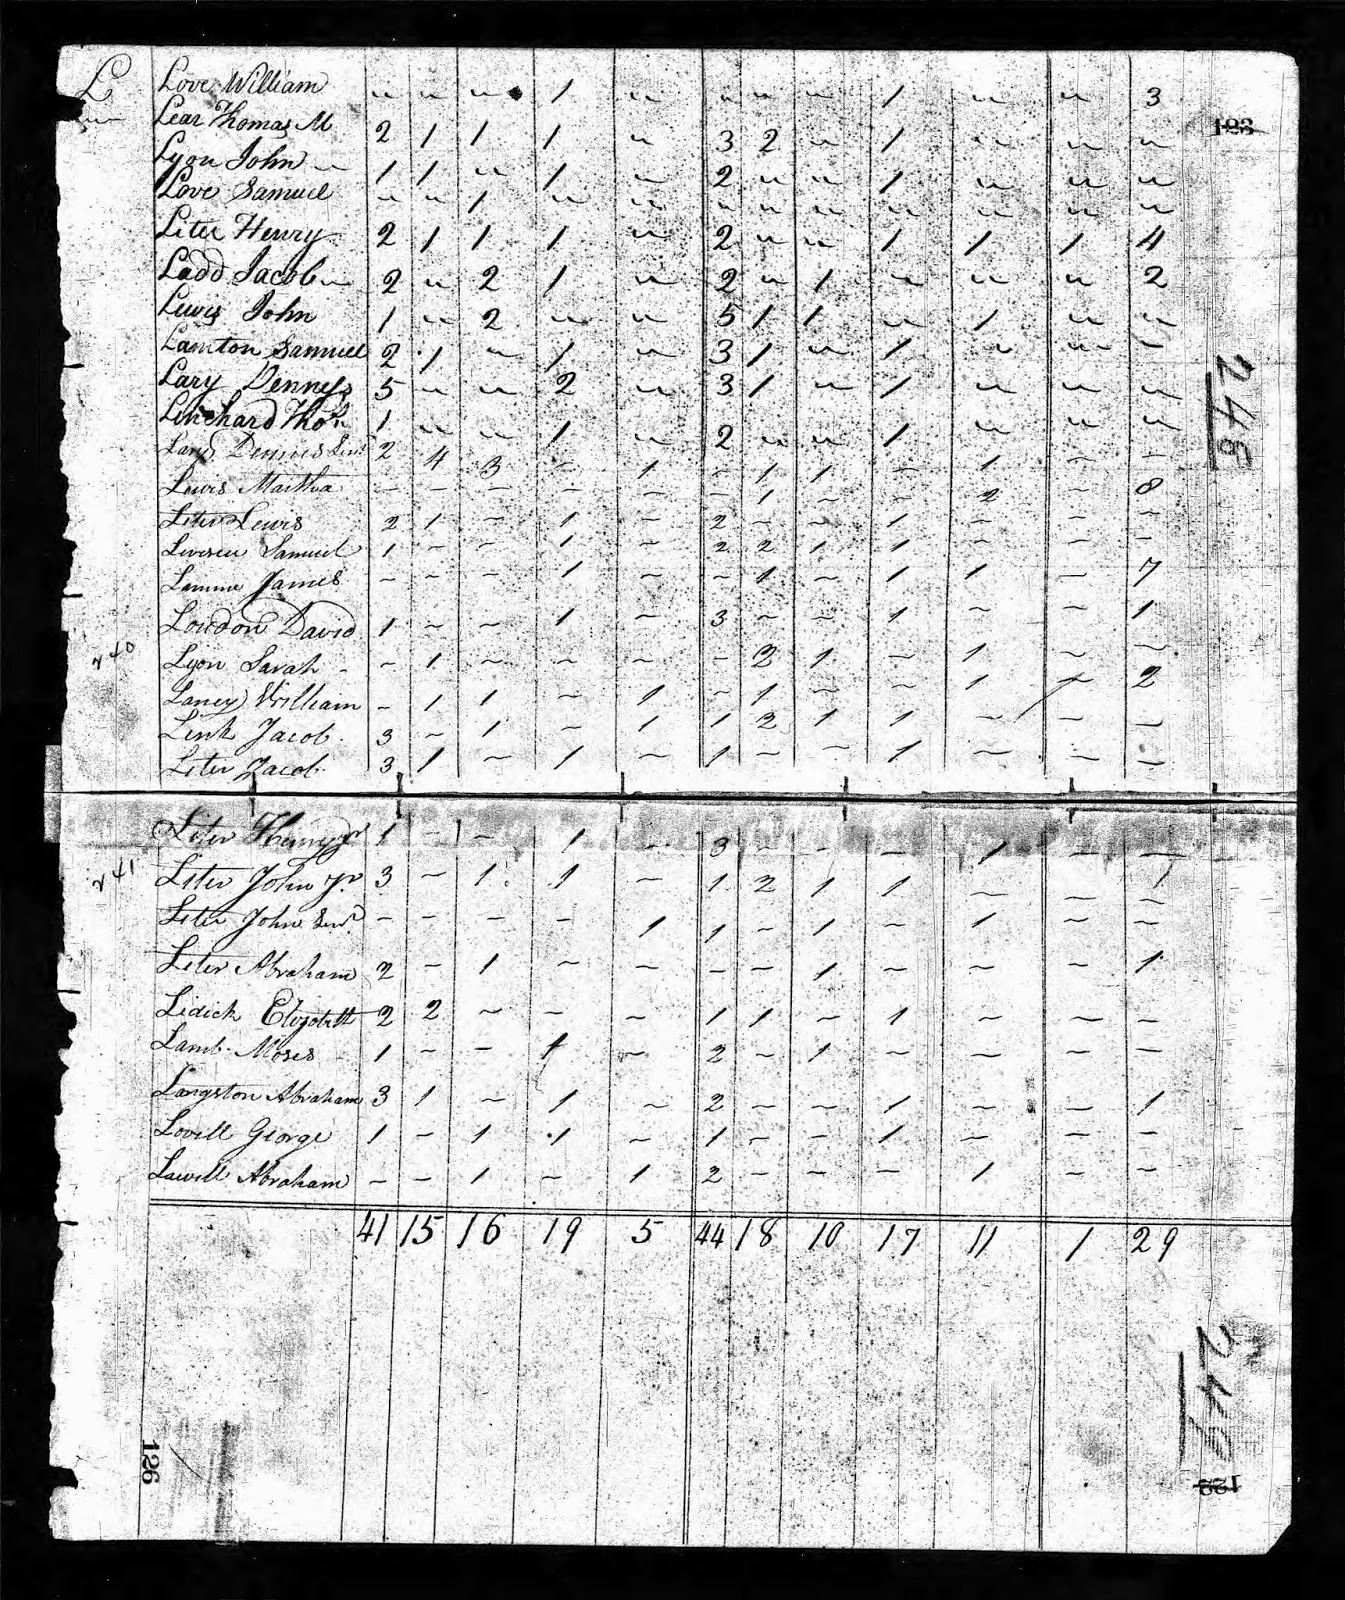 L
Love William " " " 1 " " " " 1 " " 3
Lear Thomas M 2 1 1 1 " 3 2 " 1 " " "
123
Lyon John 1 1 " 1 " 2 " " 1 " " "
Love Samuel " " 1 " " " " " " " " "
Liter Henry 2 1 1 1 " 2 " " 1 1 1 4
Ladd Jacob 2 " 2 1 " 2 " 1 " " " 2
Lewis John 1 " 2 " " 5 1 1 " 1 " "
Lamton Samuel 2 1 " 1 " 3 1 " 1 " " "
Lary Dennys 5 " " 2 " 3 1 " 1 " " "
248
Linchard Thos 1 " " 1 " 2 " " 1 " " "
Lary Dennis Senr 2 4 3 - 1 - 1 1 - 1 - -
Lewis Martha - - - - - - 1 - - 2 - 8
Liter Lewis 2 1 - 1 - 2 - - 1 - - -
Samuel 1 - - 1 - 2 2 1 1 - - -
Lamme James - - - 1 - - 1 - 1 1 - 7
Loudon David 1 - - 1 - 3 - - 1 - - 1
240
Lyon Sarah - 1 - - - - 2 1 - 1 - -
Laney William - 1 1 - 1 - 1 - - 1 - 2
Link Jacob 3 - 1 - 1 1 2 1 1 - - -
Liter Jacob 3 1 - 1 - 1 - - 1 - - -
Liter Henry Jr 1 - - 1 - 3 - - - 1 - -
241
Liter John Jr 3 - 1 1 - 1 2 1 1 - - -
Liter John Senr - - - - 1 1 - 1 - 1 - -
Liter Abraham 2 - 1 - - - - 1 - - - 1
Lidick Elizabeth 2 2 - - - 1 1 - 1 - - -
Lamb Moses 1 - - 1 - 2 - 1 - - - -
Langston Abraham 3 1 - 1 - 2 - - 1 - - 1
Lovell George 1 - 1 1 - 1 - - 1 - - -
Lawill Abraham - - 1 - 1 2 - - - 1 - -
41 15 16 19 5 44 18 10 17 11 1 29
249
126